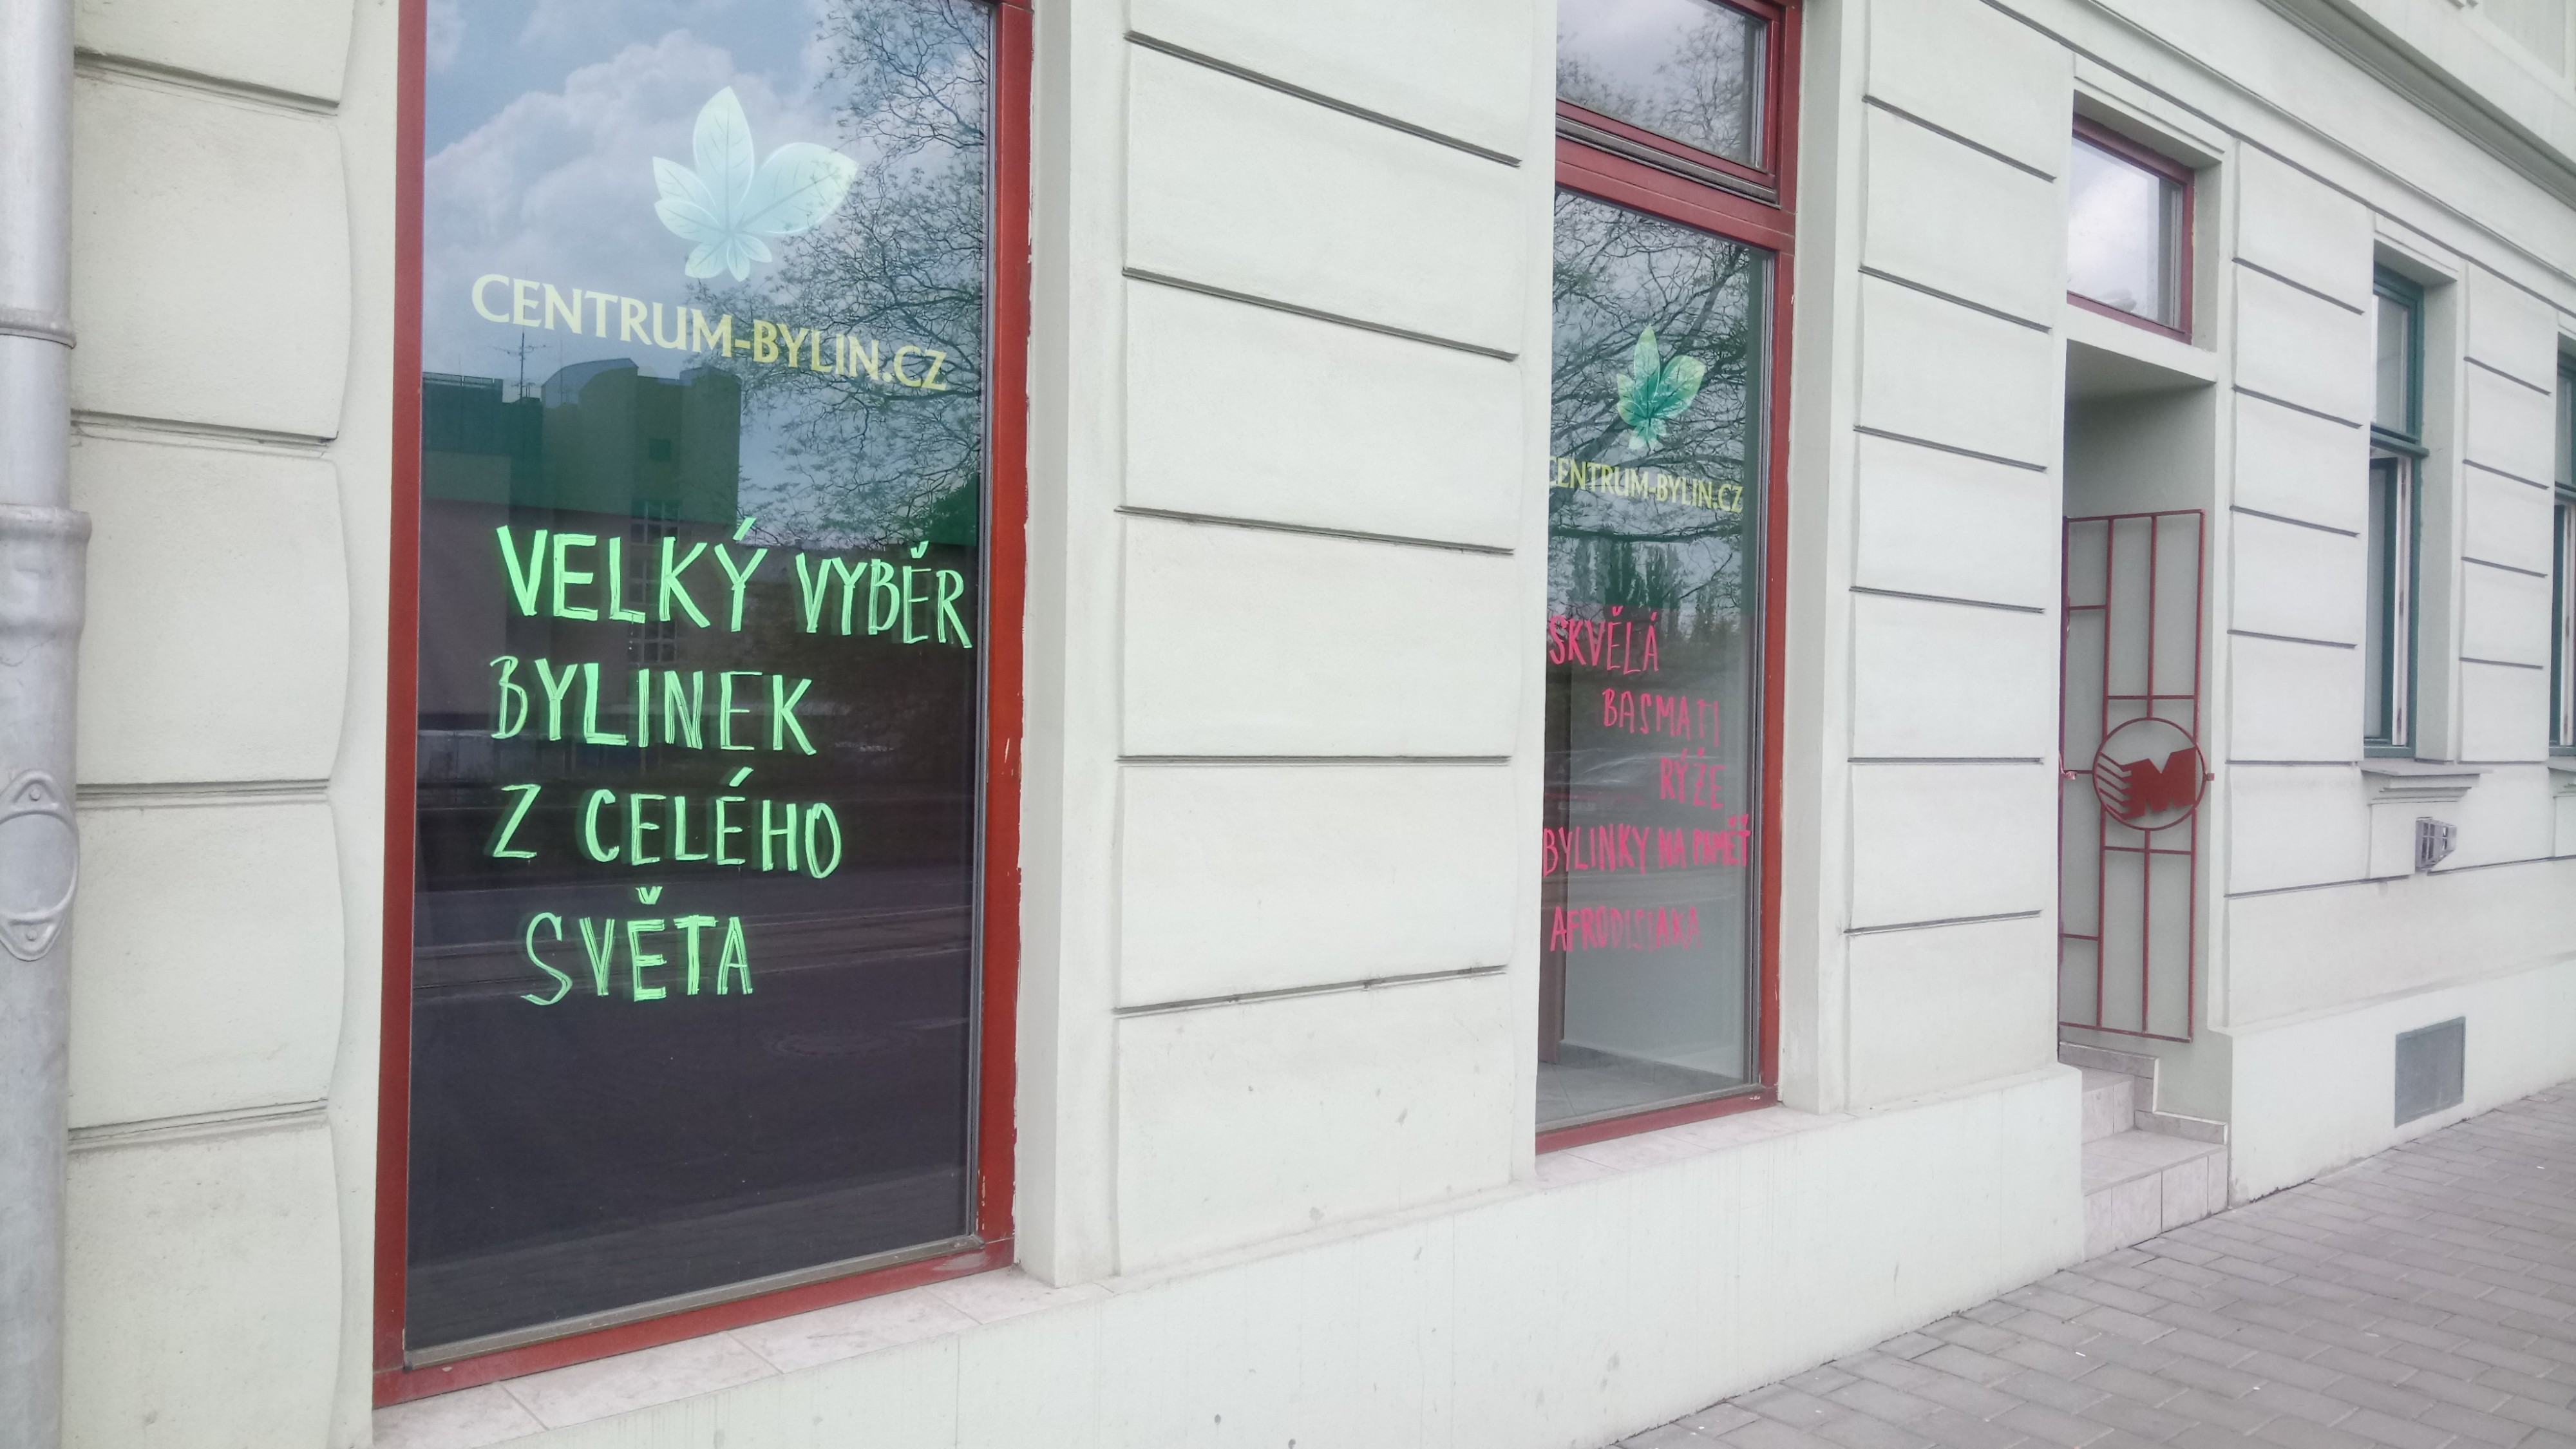 CENTRUM-BYLIN.CZ
VELKÝ VYBĚR
BYLINEK
Z CELÉHO
SVĚTA
CENTRUM-BYLIN.CZ
SKVĚLÁ
BASMATI
RÝŽE
BYLINKY NA PAMĚŤ
AFRODISIAKA
M